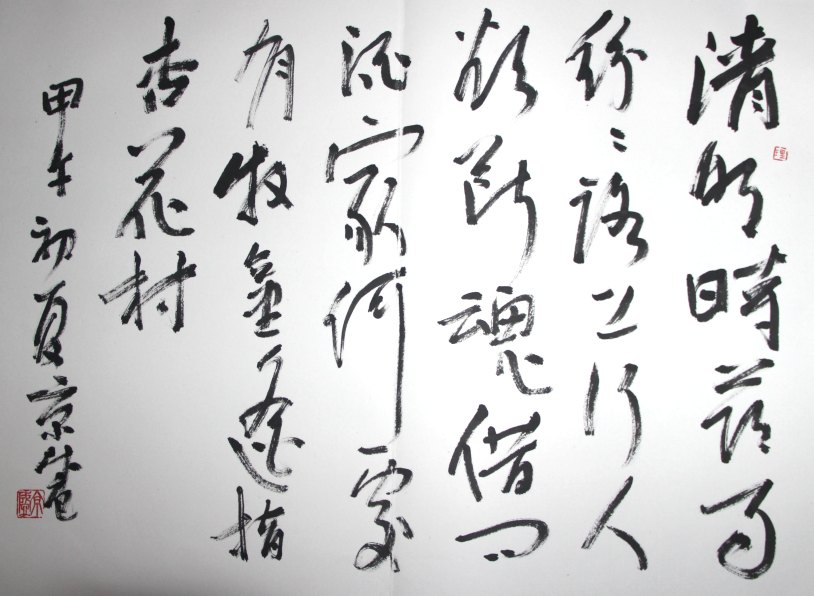 清明時節雨
紛〻路上行人
欲斷魂借問
酒家何處
有牧童遙指
杏花村
甲午初夏京